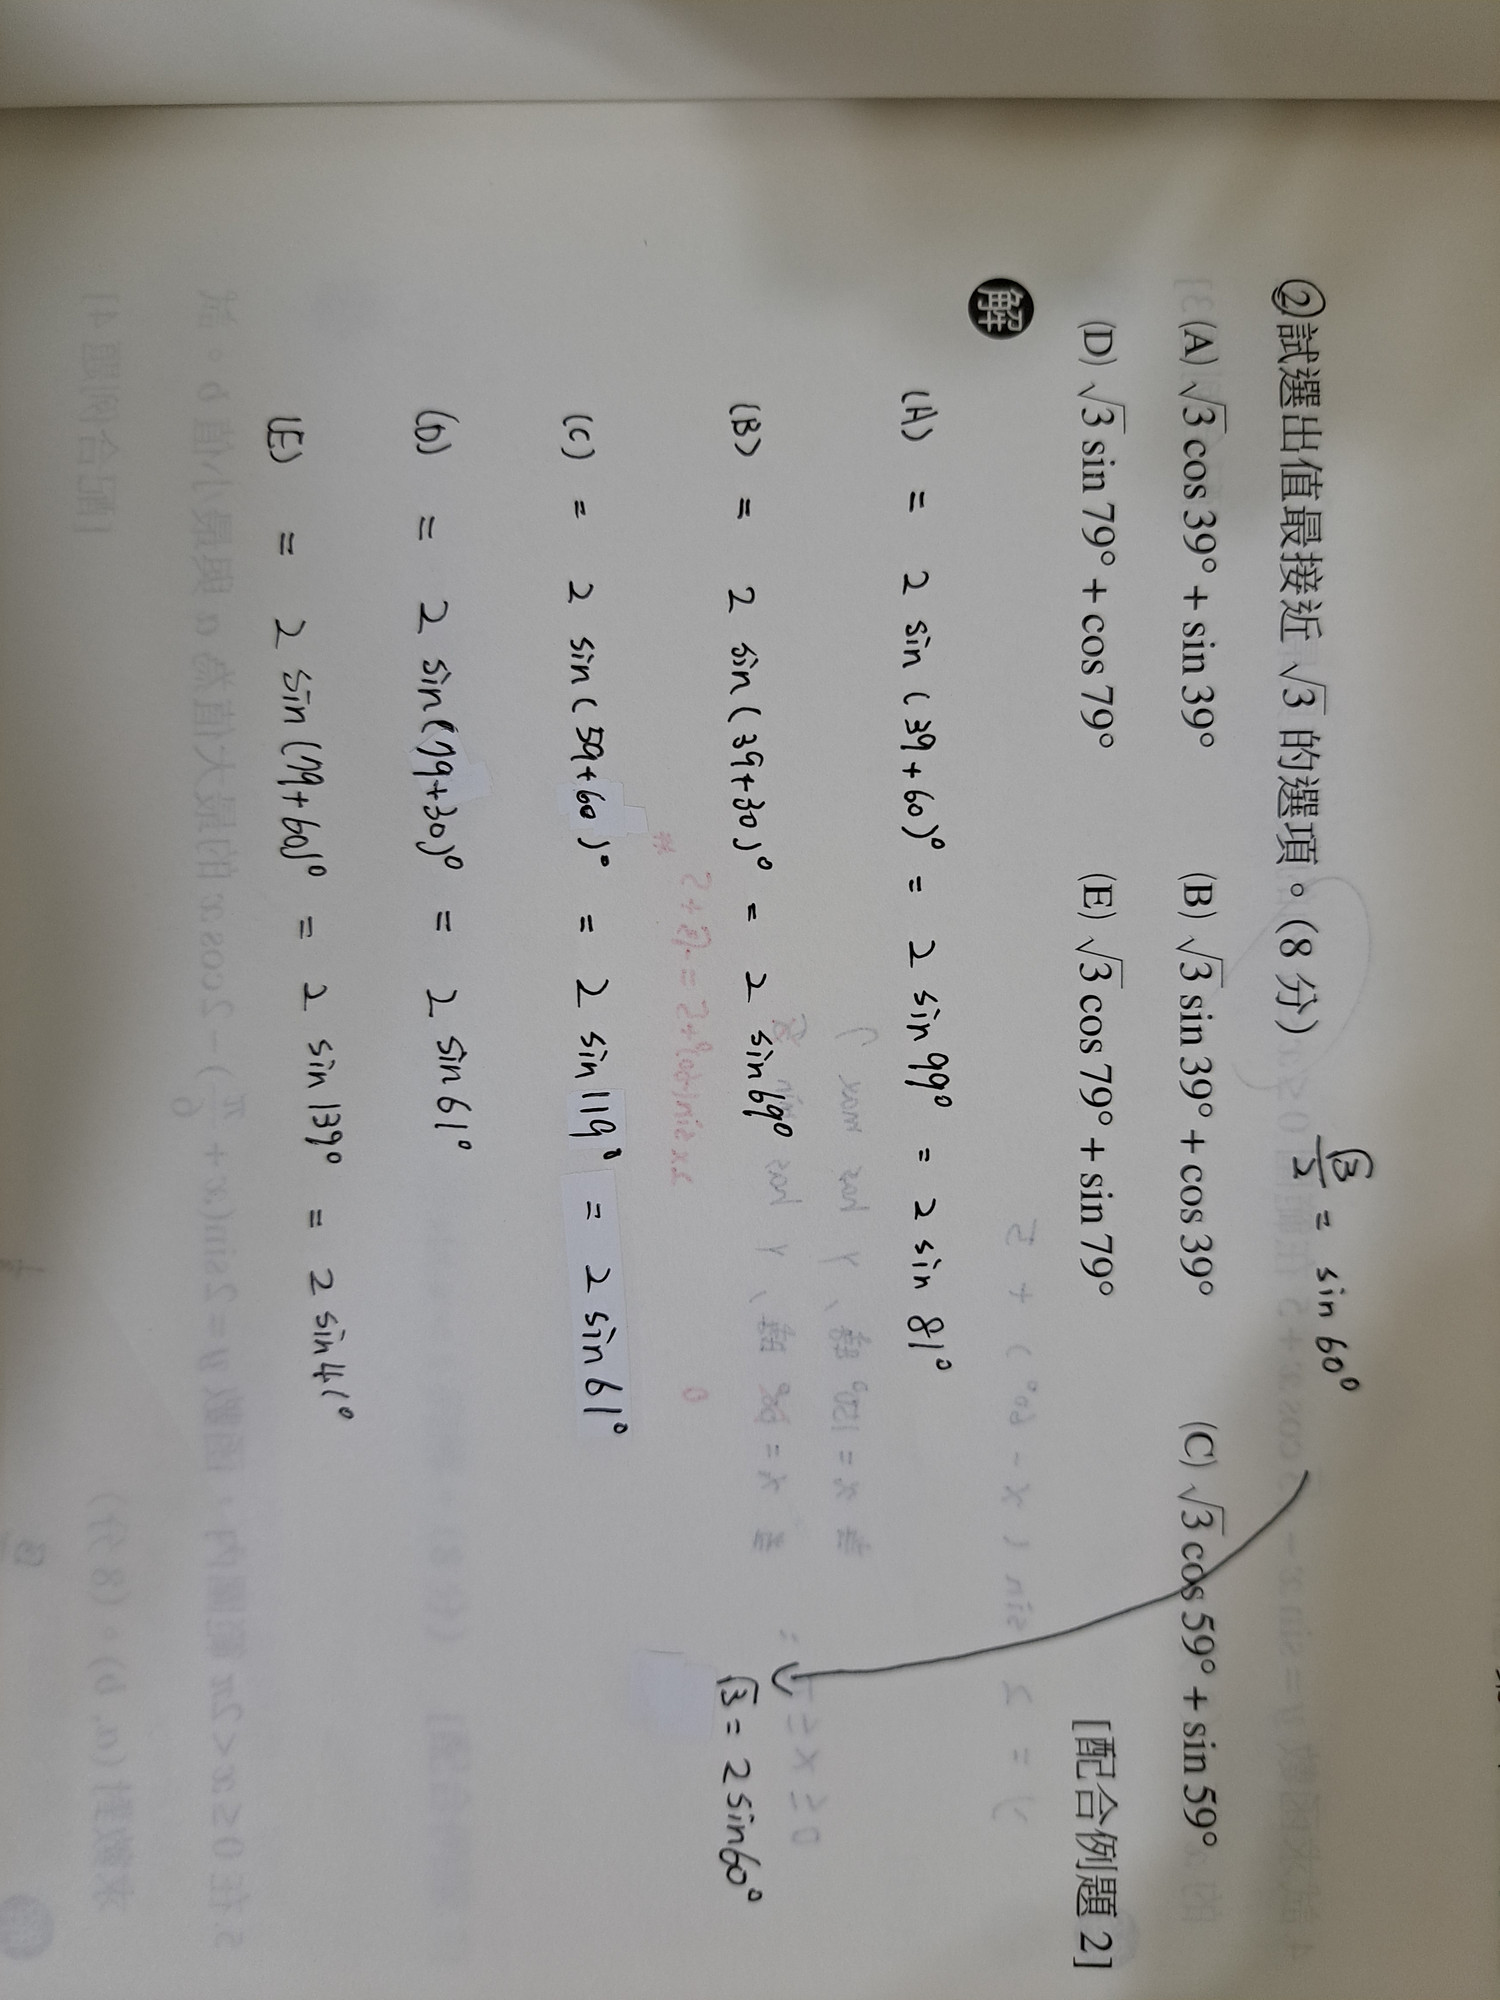 ②試選出值最接近 √3 的選項。(8 分)
√3/2 = sin 60°
(A) √3 cos 39° + sin 39° (B) √3 sin 39° + cos 39° (C) √3 cos 59° + sin 59°
(D) √3 sin 79° + cos 79° (E) √3 cos 79° + sin 79° [配合例題 2]
解
(A) = 2 sin (39+60)° = 2 sin 99° = 2 sin 81°
(B) = 2 sin (39+30)° = 2 sin 69° √3 = 2 sin 60°
(C) = 2 sin (59+60)° = 2 sin 119° = 2 sin 61°
(D) = 2 sin (79+30)° = 2 sin 61°
(E) = 2 sin (79+60)° = 2 sin 139° = 2 sin 41°